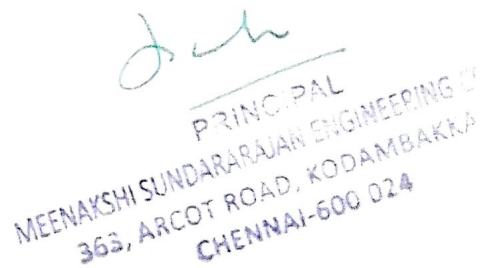 PRINCIPAL
MEENAKSHI SUNDARARAJAN ENGINEERING
363, ARCOT ROAD, KODAMBAKKA
CHENNAI-600 024